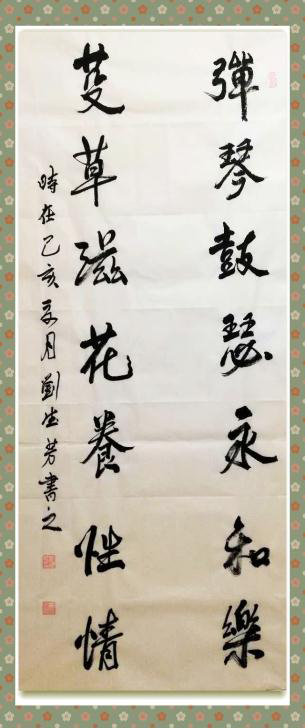 彈琴鼓瑟永和樂
芟草滋花養性情
時在己亥月劉芳書之